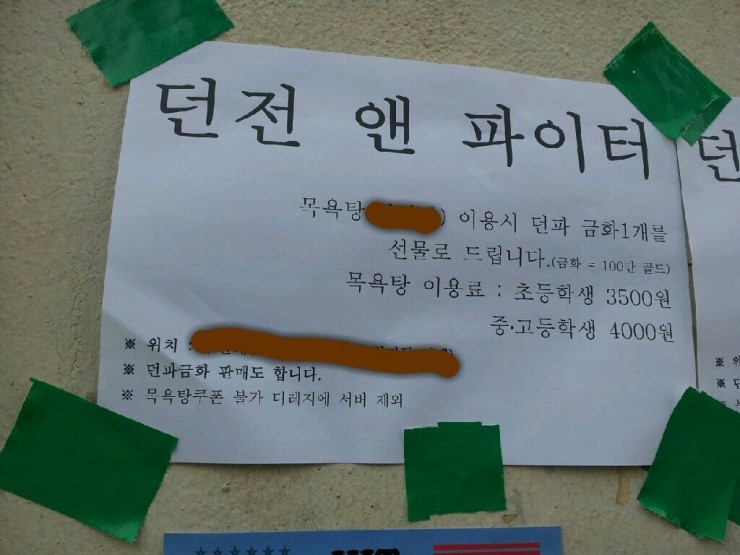 던전 앤 파이터
목욕탕 이용시 던파 금화1개를
선물로 드립니다.(금화 = 100만 골드)
목욕탕 이용료 : 초등학생 3500원
중·고등학생 4000원
※ 위치 :
※ 던파금화 판매도 합니다.
※ 목욕탕쿠폰 불가 디레지에 서버 제외
던
※ 위
※ 던
※